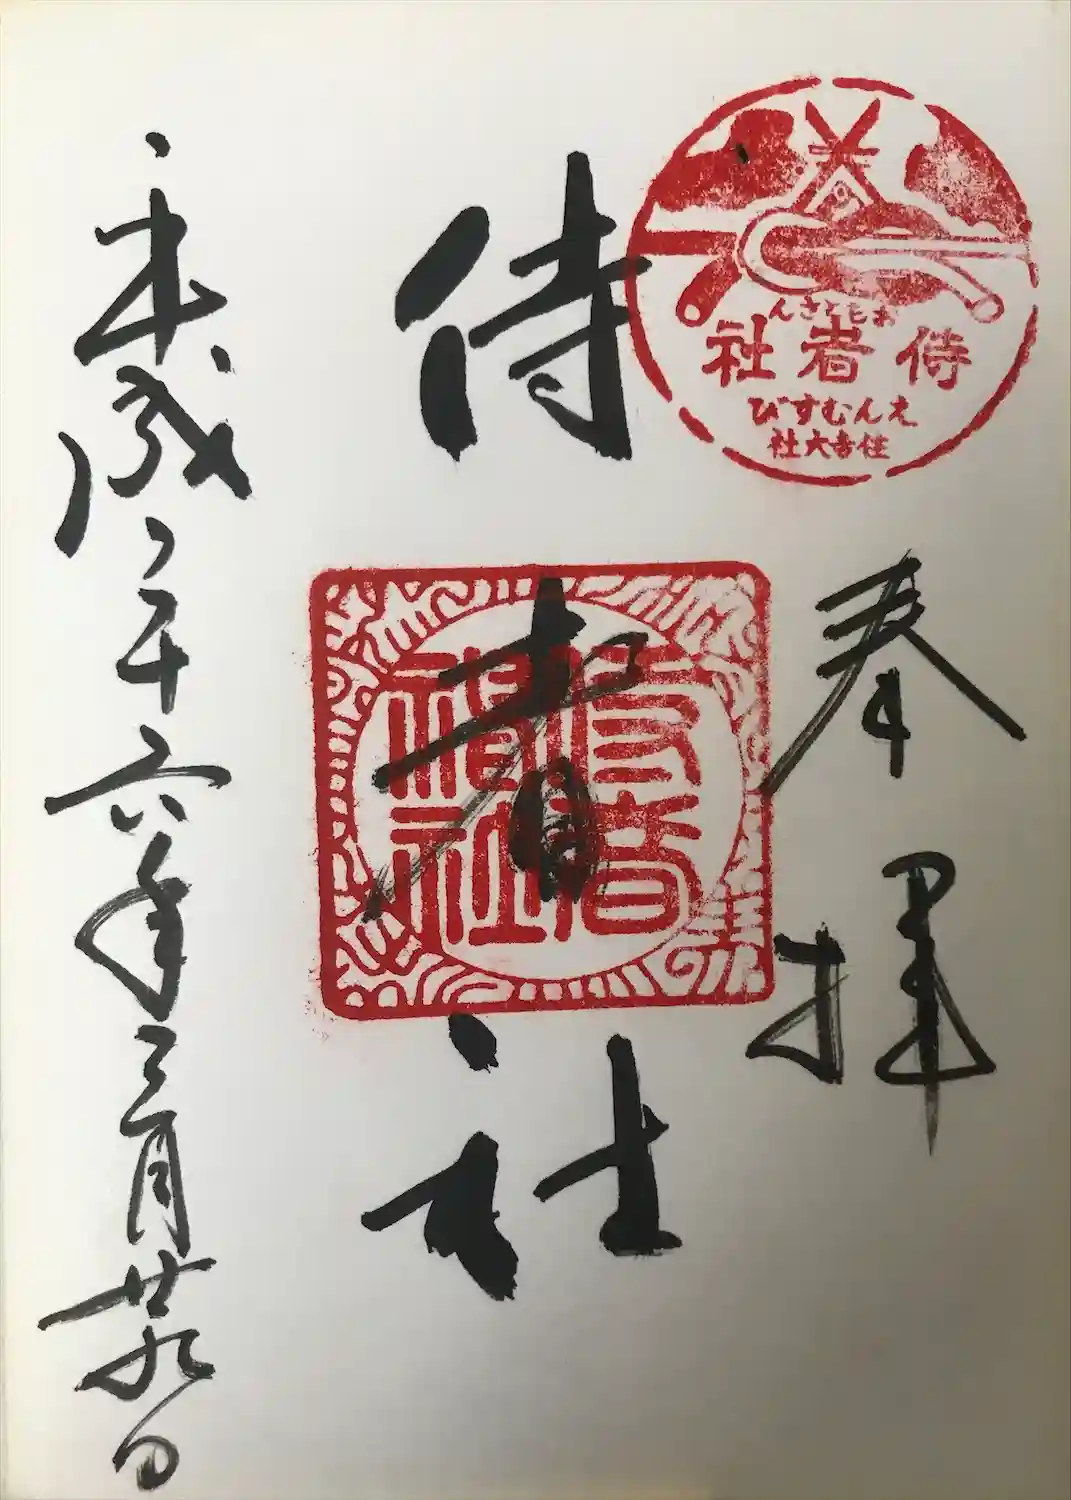 おもとさん
侍者社
えんむすび
住吉大社
奉拝
侍者社
平成二十六年三月廿九日